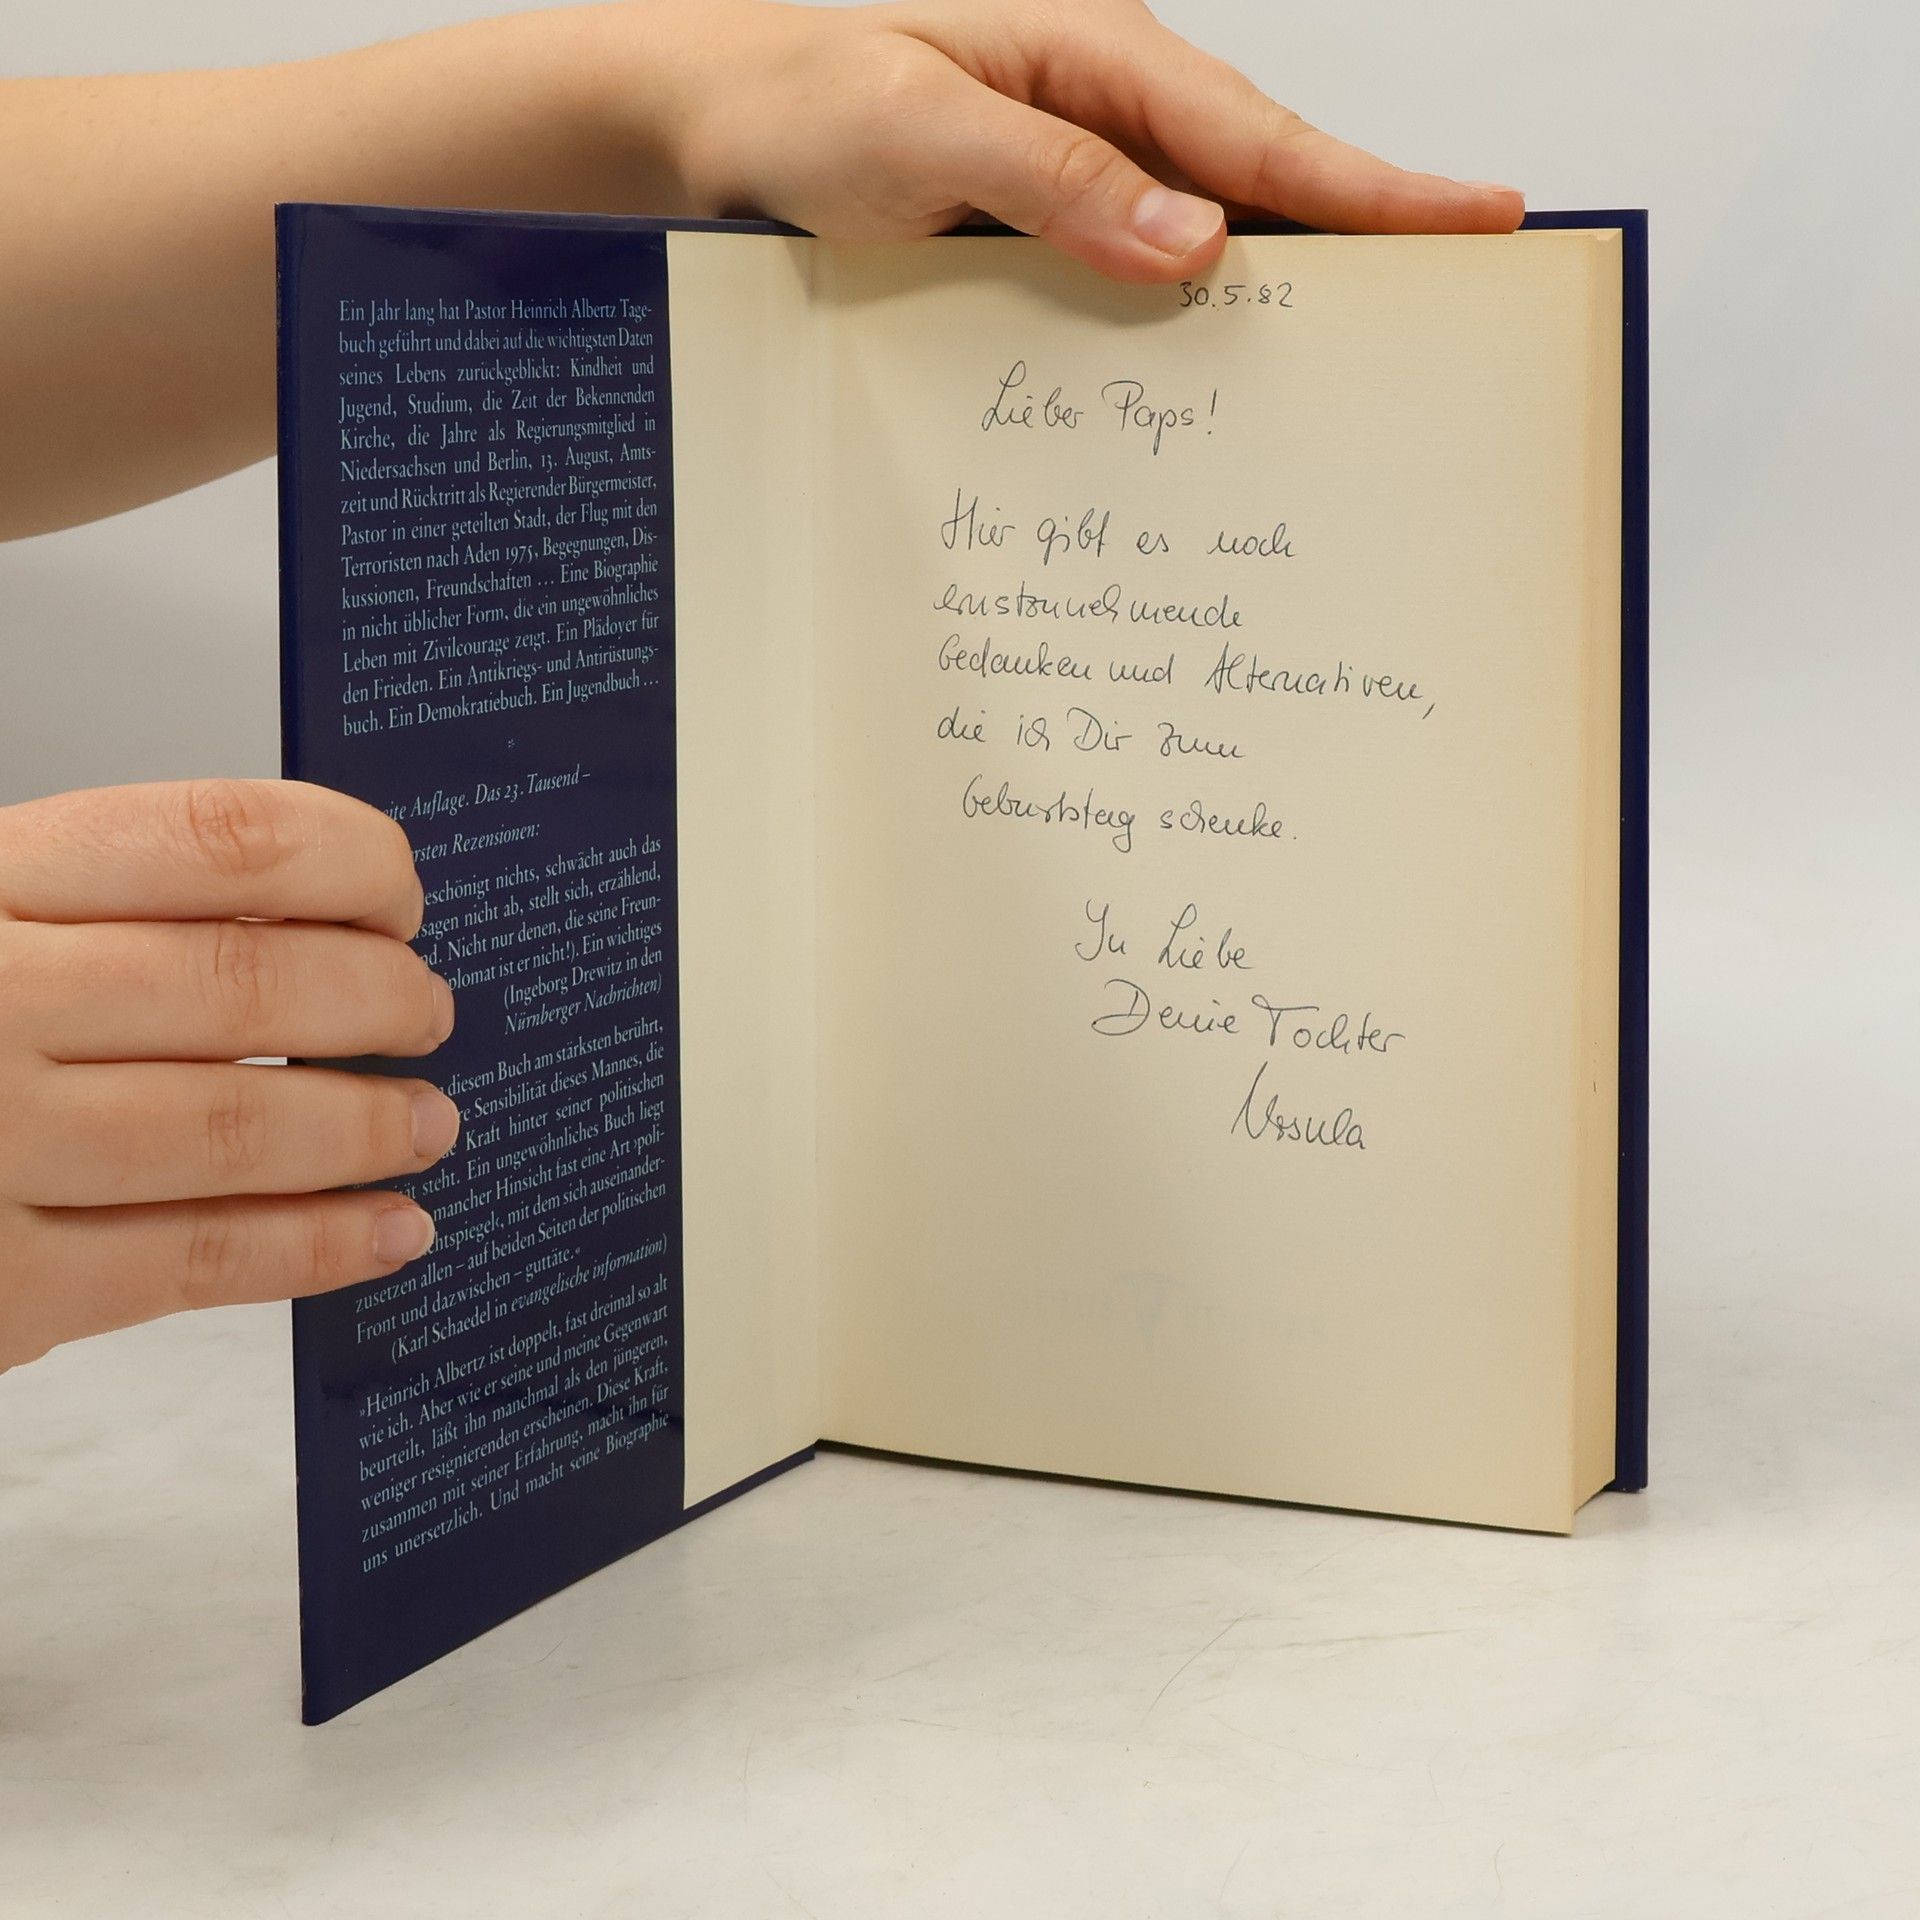 Ein Jahr lang hat Pastor Heinrich Albertz Tage-
buch geführt und dabei auf die wichtigsten Daten
seines Lebens zurückgeblickt: Kindheit und
Jugend, Studium, die Zeit der Bekennenden
Kirche, die Jahre als Regierungsmitglied in
Niedersachsen und Berlin, 13. August, Amts-
zeit und Rücktritt als Regierender Bürgermeister,
Pastor in einer geteilten Stadt, der Flug mit den
Terroristen nach Aden 1975, Begegnungen, Dis-
kussionen, Freundschaften ... Eine Biographie
in nicht üblicher Form, die ein ungewöhnliches
Leben mit Zivilcourage zeigt. Ein Plädoyer für
den Frieden. Ein Antikriegs- und Antirüstungs-
buch. Ein Demokratiebuch. Ein Jugendbuch ...
*
Auflage. Das 23. Tausend –
Rezensionen:
nichts, schwächt auch das
nicht ab, stellt sich, erzählend,
Nicht nur denen, die seine Freun-
ist er nicht!). Ein wichtiges
(Ingeborg Drewitz in den
Nürnberger Nachrichten)
diesem Buch am stärksten berührt,
Sensibilität dieses Mannes, die
Kraft hinter seiner politischen
steht. Ein ungewöhnliches Buch liegt
mancher Hinsicht fast eine Art ›poli-
mit dem sich auseinander-
zusetzen allen – auf beiden Seiten der politischen
Front und dazwischen – guttäte.«
(Karl Schaedel in evangelische information)
»Heinrich Albertz ist doppelt, fast dreimal so alt
wie ich. Aber wie er seine und meine Gegenwart
beurteilt, läßt ihn manchmal als den jüngeren,
weniger resignierenden erscheinen. Diese Kraft,
zusammen mit seiner Erfahrung, macht ihn für
uns unersetzlich. Und macht seine Biographie
30.5.82
Lieber Paps!
Hier gibt es noch
ernstzunehmende
Gedanken und Alternativen,
die ich Dir zum
Geburtstag schenke.
In Liebe
Deine Tochter
Ursula